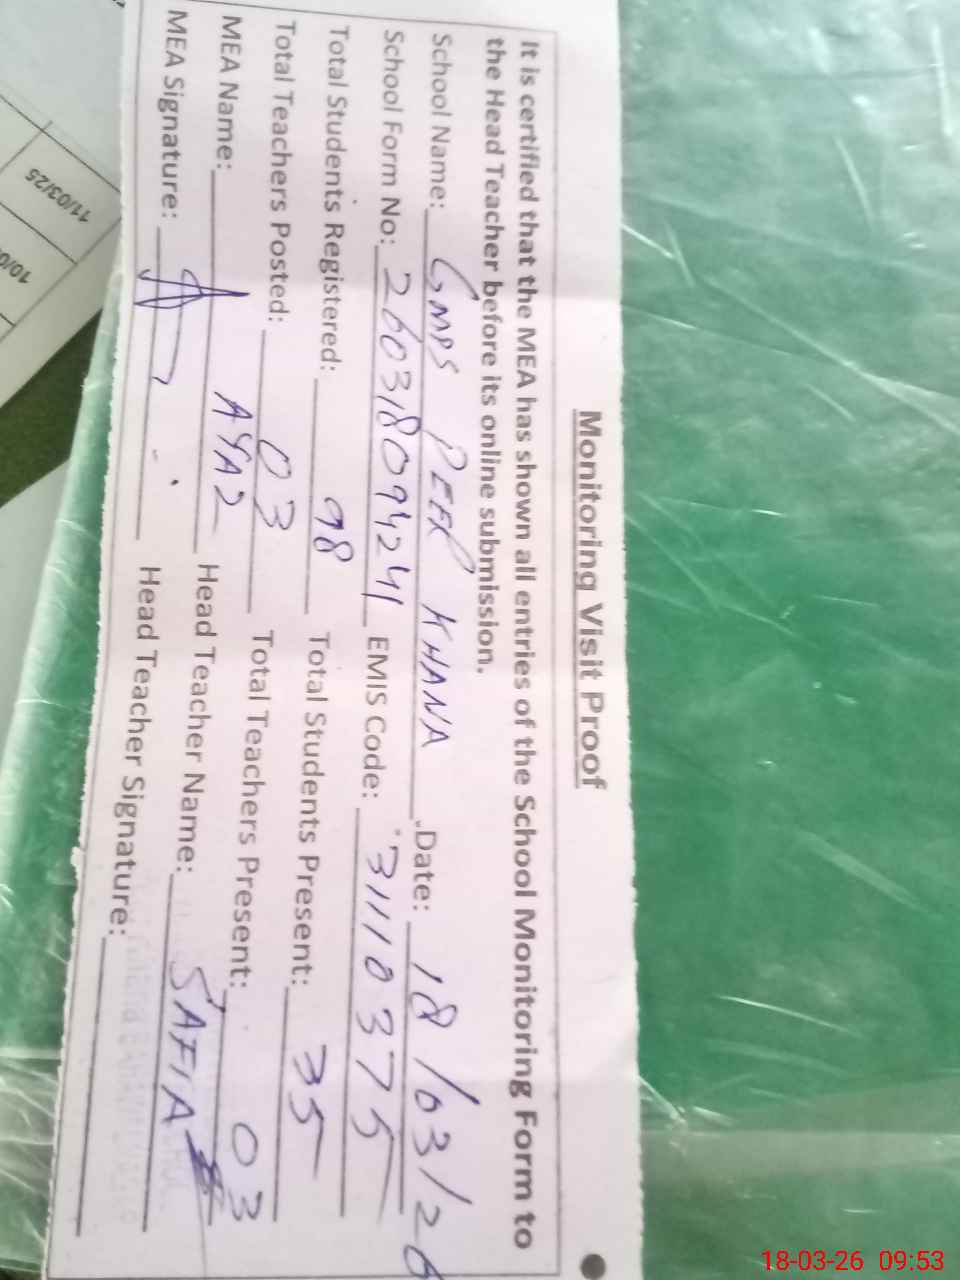 Monitoring Visit Proof
It is certified that the MEA has shown all entries of the School Monitoring Form to
the Head Teacher before its online submission.
School Name: GMPS PEER KHANA Date: 18/03/26
School Form No: 260318094241 EMIS Code: 31110375
Total Students Registered: 98 Total Students Present: 35
Total Teachers Posted: 03 Total Teachers Present: 03
MEA Name: AYAZ Head Teacher Name: SAFIA
MEA Signature: Head Teacher Signature:
11/03/25
18-03-26 09:53